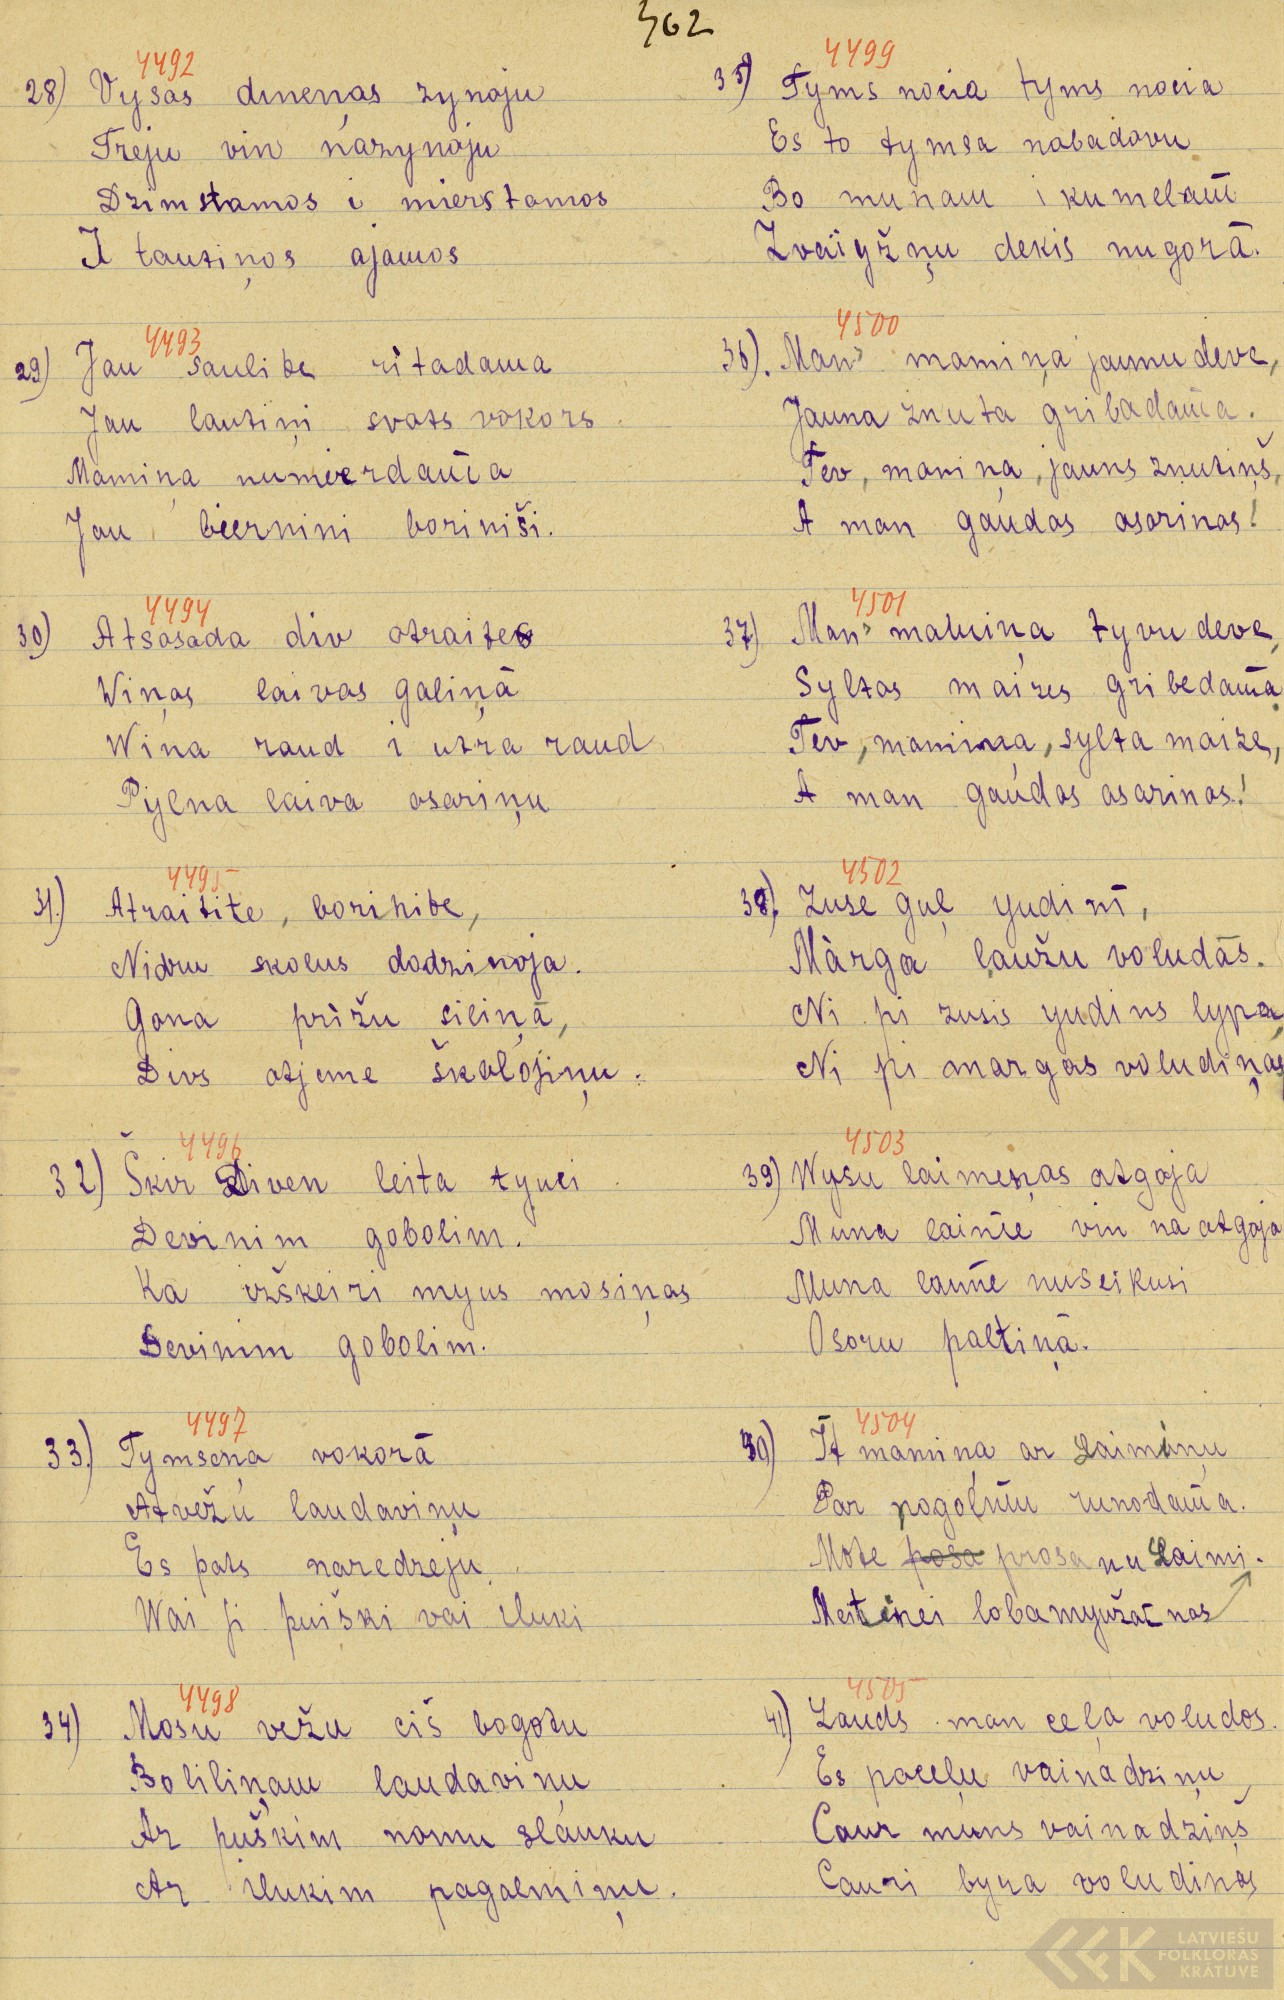 362
4492
28) Vysas dineņas zynoju
Treju vin nazynoju
Dzimstamos i mierstamos
I tautiņos ajamos
4493
29) Jau saulite ritadama
Jau lautiņi svats vokors
Mamiņa numierdama
Jau biernini boriniši.
4494
30) Atsasada div atraites
Wiņas laivas galiņā
Wiņa raud i utra raud
Pylna laiva asariņu
4495
31.) Atraitite, borinite,
Nidru skolus dadzinoja.
Gona prižu siliņā,
Divs atjeme škalojiņu.
4496
32) Škir Diven leita tyuci
Devinim gobolim.
Ka izškeiri myus mosiņas
Devinim gobolim.
4497
33.) Tymseņa vokorā
Atvežu laudaviņu
Es pats naredzeju
Wai ji puiški vai sluki
4498
34) Mosu vežu ciš bogotu
Boliliņam laudaviņu
Ar puškim nomu slauku
Ar slukim pagalmiņu.
4499
35) Tyms nocia tyms nocia
Es to tymsa nabadovu
Bo munam i kumelam
Zvaigžņu dekis nugorā.
4500
36). Man' mamiņa jaunu deve,
Jauna znuta gribadama.
Tev, mamiņa, jauns znutiņš,
A man gaudas asarinas!
4501
37) Man' mamiņa tyvu deve,
Syltas maizes gribedama
Tev, mamina, sylta maize,
A man gaudas asarinas!
4502
38). Zuse guļ yudinī,
Mārga ļaužu voludās.
Ni pi zusis yudins lypa,
Ni pi margas voludiņas
4503
39) Wysu laimeņas atgoja
Muna laime vin na atgoja
Muna laime nuseikusi
Osoru paltiņā.
4504
40) It mamiņa ar Laimiņu
Par pogolmu runodama.
Mote posa prosa nu Laimi.
Meitinei loba myužac nas
4505
41) Lauds man ceļa voludos.
Es paceļu vainadziņu
Caur muns vainadziņš
Cauri byra voludinas
LATVIEŠU
FOLKLORAS
KRĀTUVE